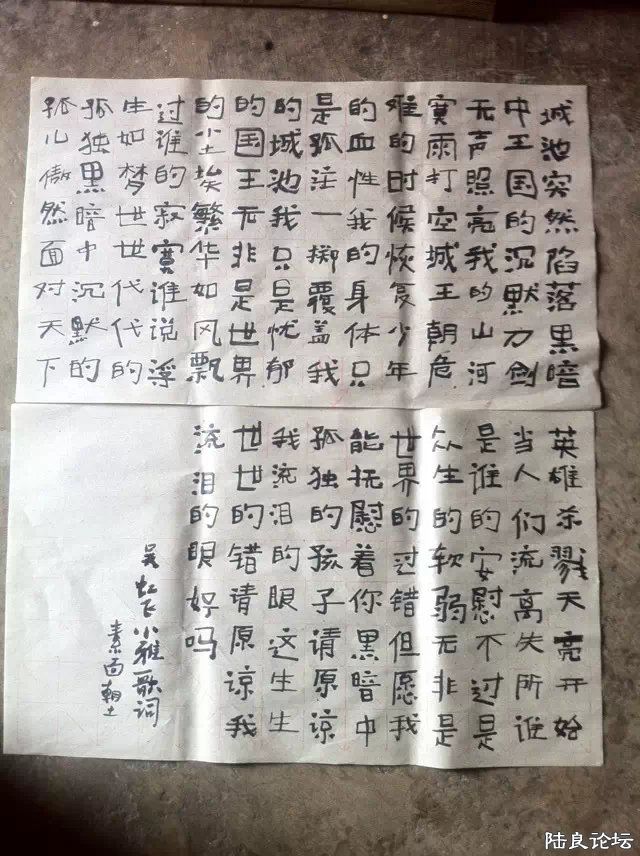 城池突然陷落黑暗
中王国的沉默刀剑
无声照亮我的山河
寞雨打空城王朝危
难的时候恢复少年
的血性我的身体只
是孤注一掷覆盖我
的城池我只是忧郁
的国王无非是世界
的尘埃繁华如风飘
过谁的寂寞谁说浮
生如梦世世代代的
孤独黑暗中沉默的
孤儿傲然面对天下
英雄杀戮天亮开始
当人们流离失所谁
是谁的安慰不过是
众生的软弱无非是
世界的过错但愿我
能抚慰着你黑暗中
孤独的孩子请原谅
我流泪的眼这生生
世世的错请原谅我
流泪的眼好吗
吴虹飞小雅一歌词
素面朝土
陆良论坛